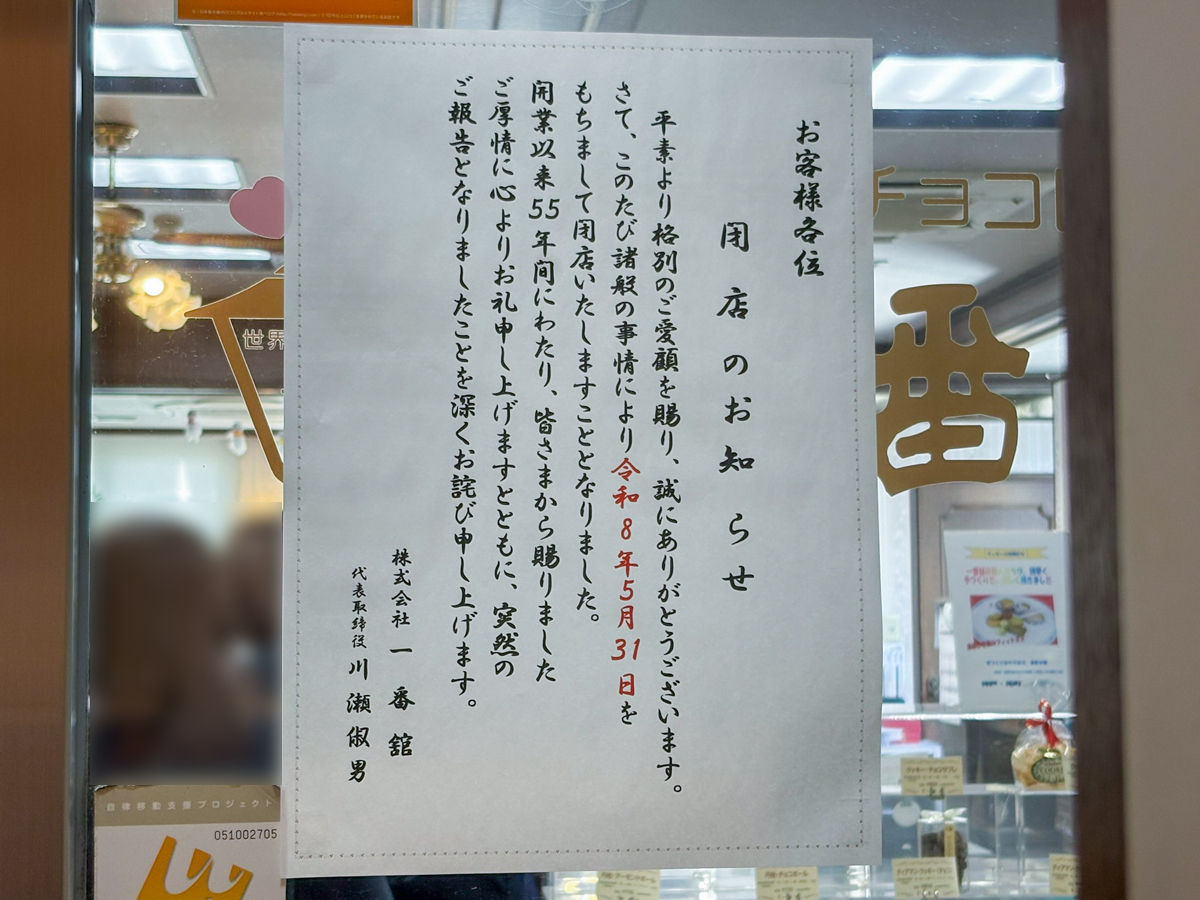 お客様各位
閉店のお知らせ
平素より格別のご愛顧を賜り、誠にありがとうございます。
さて、このたび諸般の事情により令和8年5月31日を
もちまして閉店いたしますこととなりました。
開業以来55年間にわたり、皆さまから賜りました
ご厚情に心よりお礼申し上げますとともに、突然の
ご報告となりましたことを深くお詫び申し上げます。
株式会社 一番館
代表取締役 川瀬俶男
チョコレ
番
世界
自律移動支援プロジェクト
051002705